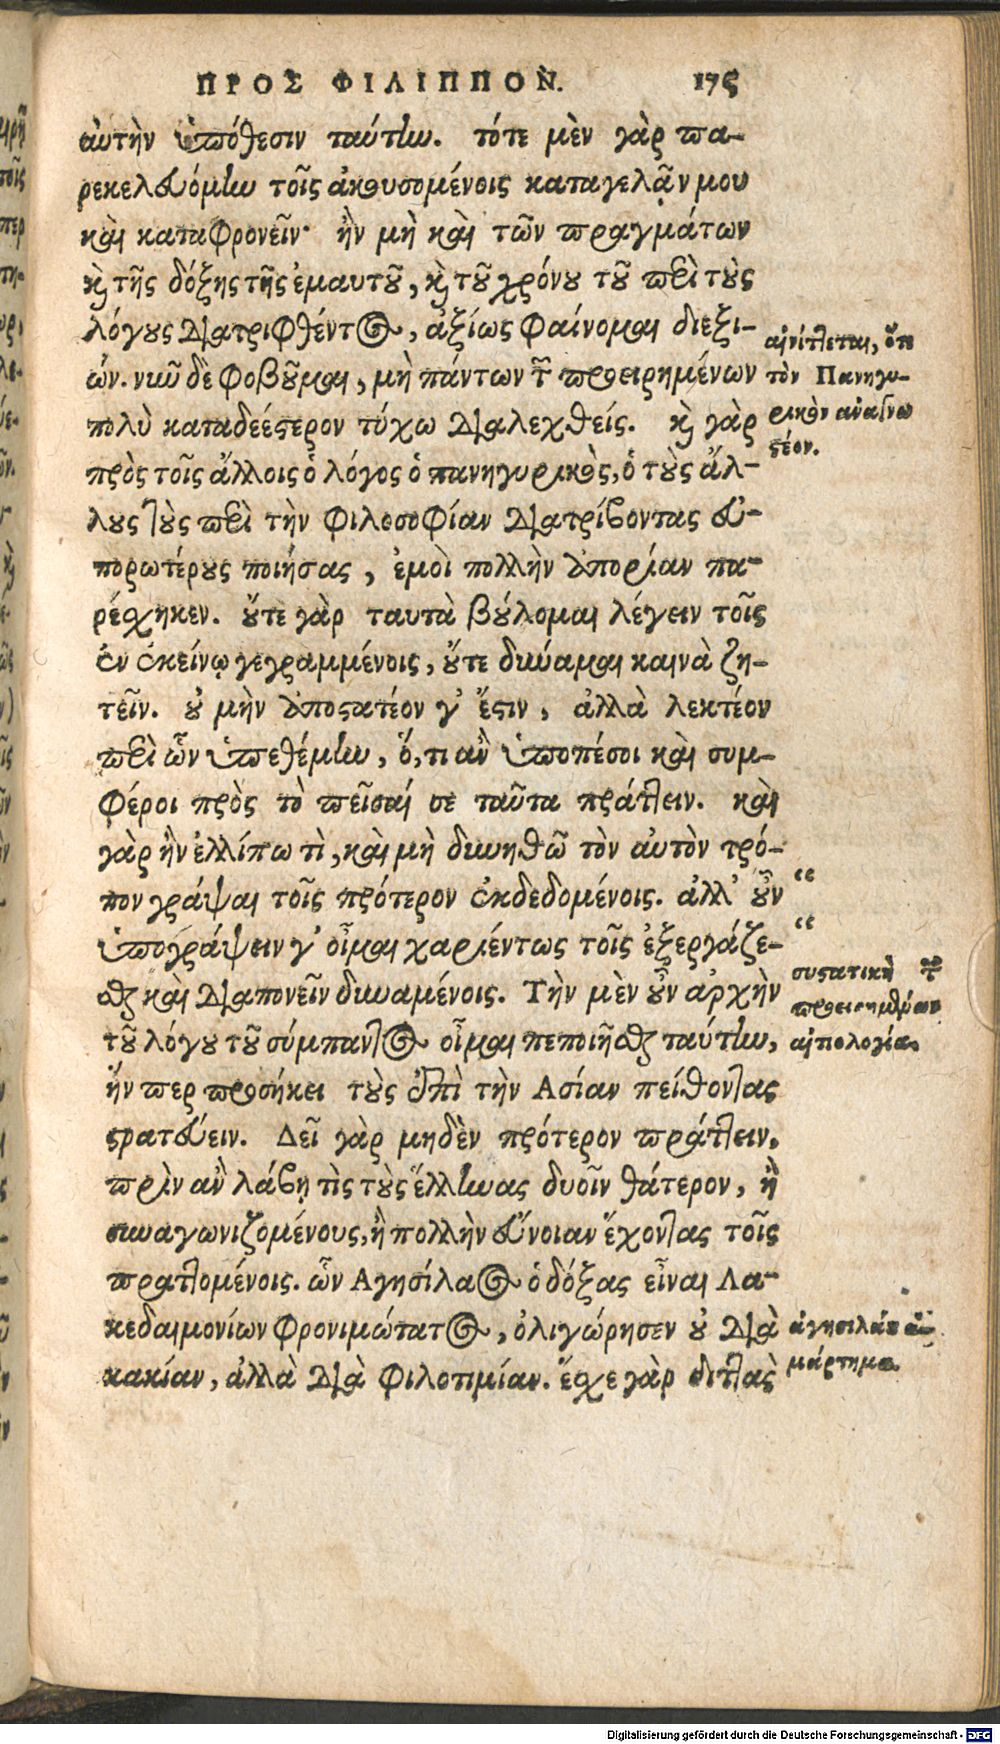 ΠΡΟΣ ΦΙΛΙΠΠΟΝ. 175
αὐτὴν ὑπόθεσιν ταύτην. τότε μὲν γὰρ πα-
ρεκελευόμην τοῖς ἀκουσομένοις καταγελᾷν μου
καὶ καταφρονεῖν· ἢν μὴ καὶ τῶν πραγμάτων
καὶ τῆς δόξης τῆς ἐμαυτοῦ, καὶ τοῦ χρόνου τοῦ περὶ τοὺς
λόγους διατριφθέντος, ἀξίως φαίνομαι διεξι-
ών. νῦν δὲ φοβοῦμαι, μὴ πάντων τῶν προειρημένων
πολὺ καταδεέστερον τύχω διαλεχθείς. καὶ γὰρ
πρὸς τοῖς ἄλλοις ὁ λόγος ὁ πανηγυρικὸς, ὁ τοὺς ἄλ-
λους τοὺς περὶ τὴν φιλοσοφίαν διατρίβοντας εὐ-
πορωτέρους ποιήσας, ἐμοὶ πολλὴν ἀπορίαν πα-
ρέσχηκεν. οὔτε γὰρ ταυτὰ βούλομαι λέγειν τοῖς
ἐν ἐκείνῳ γεγραμμένοις, οὔτε δύναμαι καινὰ ζη-
τεῖν. οὐ μὴν ἀποστατέον γ' ἔστιν, ἀλλὰ λεκτέον
περὶ ὧν ὑπεθέμην, ὅ, τι ἂν ὑποπέσοι καὶ συμ-
φέροι πρὸς τὸ πεῖσαί σε ταῦτα πράττειν. καὶ
γὰρ ἢν ἐλλίπω τὶ, καὶ μὴ δυνηθῶ τὸν αὐτὸν τρό-
πον γράψαι τοῖς πρότερον ἐκδεδομένοις. ἀλλ' οὖν
ὑπογράψειν γ' οἶμαι χαριέντως τοῖς ἐξεργάζε-
σθαι καὶ διαπονεῖν δυναμένοις. Τὴν μὲν οὖν ἀρχὴν
τοῦ λόγου τοῦ σύμπαντος οἶμαι πεποιῆσθαι ταύτην,
ἥν περ προσήκει τοὺς ἐπὶ τὴν Ασίαν πείθοντας
στρατεύειν. Δεῖ γὰρ μηδὲν πρότερον πράττειν,
πρὶν ἂν λάβῃ τὶς τοὺς ἕλληνας δυοῖν θάτερον, ἢ
συναγωνιζομένους, ἢ πολλὴν εὔνοιαν ἔχοντας τοῖς
πραττομένοις. ὧν Αγησίλαος ὁ δόξας εἶναι Λα-
κεδαιμονίων φρονιμώτατος, ὀλιγώρησεν οὐ διὰ
κακίαν, ἀλλὰ διὰ φιλοτιμίαν. ἔσχε γὰρ διττὰς
αἰνίττεται, ὅτι
τὸν Πανηγυ-
ρικὸν ἀναγνω
στέον.
“
“
συστατικὴ τῶν
προειρημένων
ἀπολογία.
ἀγησιλάου ἁ-
μάρτημα.
Digitalisierung gefördert durch die Deutsche Forschungsgemeinschaft - DFG